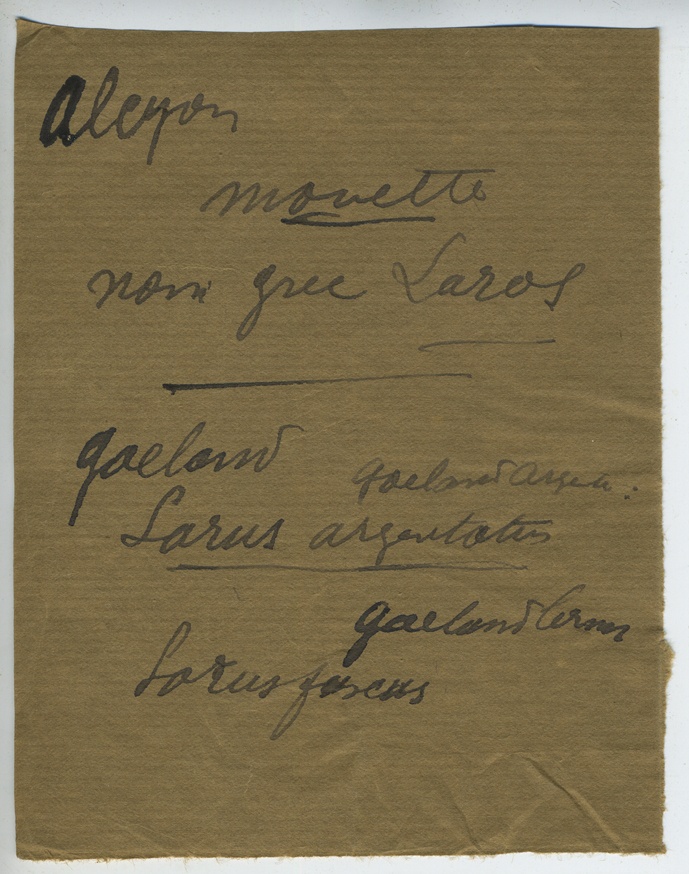 Alcyon
mouette
nom grec Laros
gaeland
gaeland argente:
Larus argentatus
gaeland brun
Larus fuscus